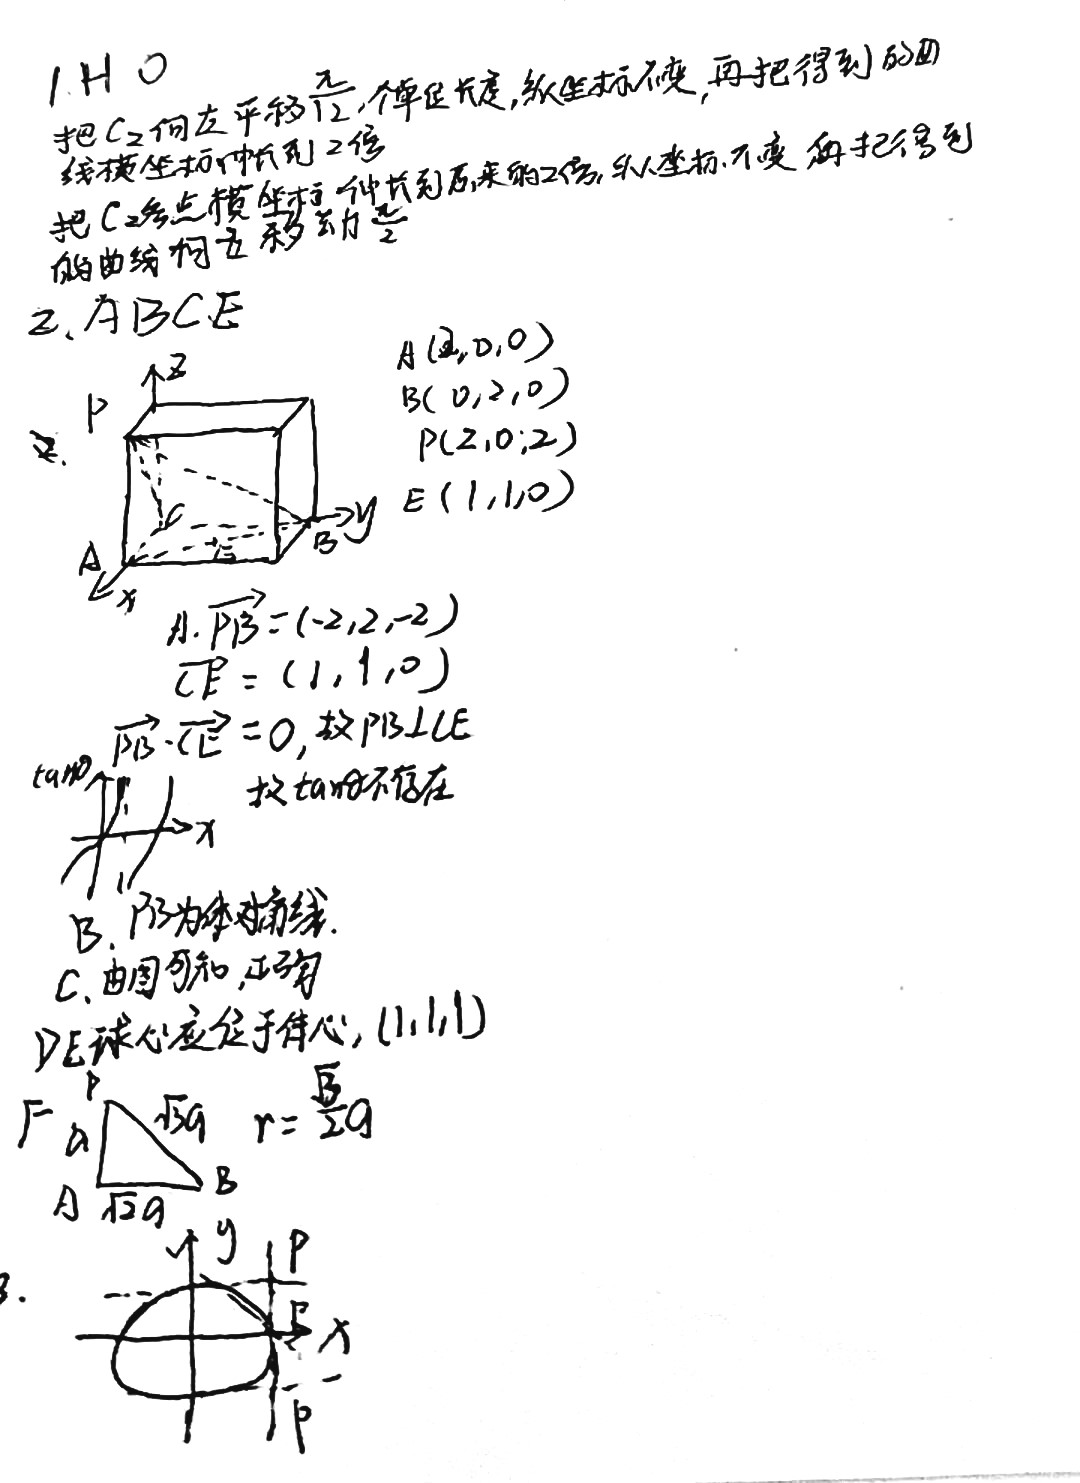 1. H O
把C₂向左平移π/12个单位长度,纵坐标不变,再把得到的曲
线横坐标伸长到2倍
把C₂各点横坐标伸长到原来的2倍,纵坐标不变 再把得到
的曲线向左移动π/2
2. ABCE
A(2,0,0)
B(0,2,0)
P(2,0,2)
E(1,1,0)
z
P
2.
C
y
A
E
B
x
A. PB=(-2,2,-2)
CE=(1,1,0)
PB·CE=0,故PB⊥CE
tanθ
故tanθ不存在
x
B. PB为体对角线.
C. 由图可知,正确
DE 球心应位于体心,(1,1,1)
P
F
a
√3a
r=√3/2a
A
√2a
B
y
P
3.
F
x
P